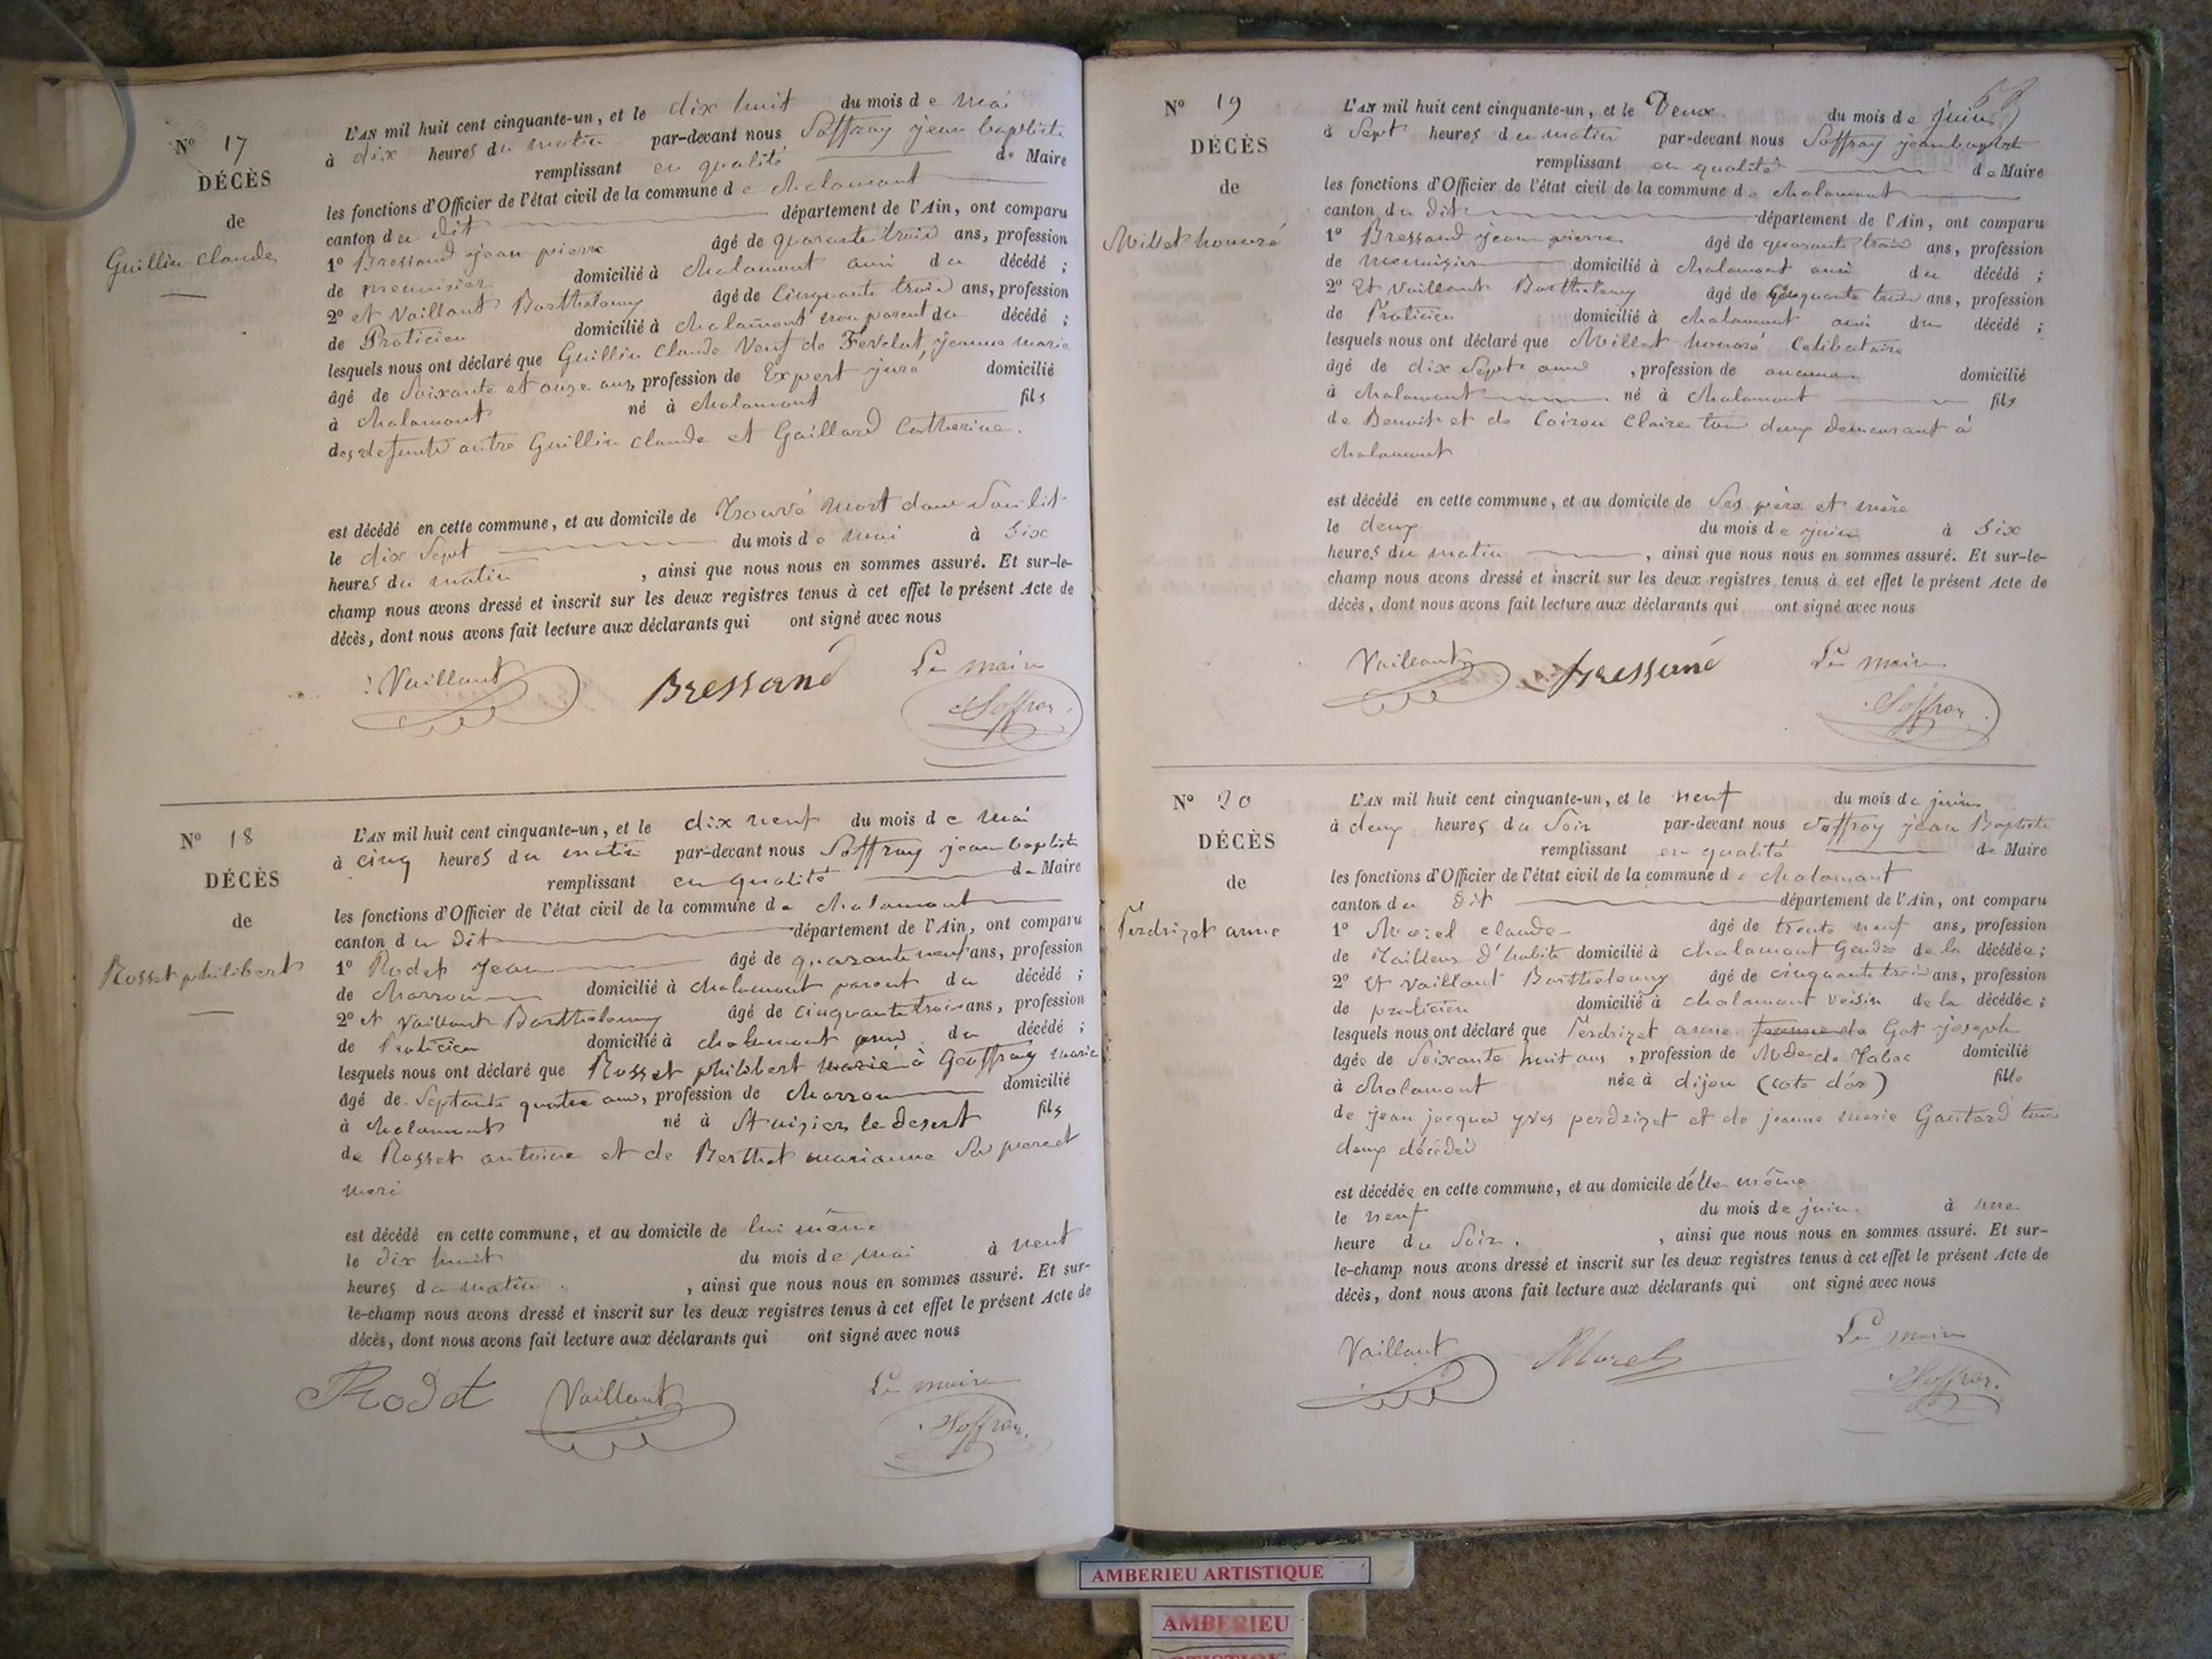 N° 17
DÉCÈS
de
Guillin Claude
L'AN mil huit cent cinquante-un, et le dix huit du mois de Mai
à dix heures du matin par-devant nous Soffray jean baptiste
remplissant en qualité de Maire
les fonctions d'Officier de l'état civil de la commune de chalamont
canton du dit département de l'Ain, ont comparu
1° Bressand jean pierre âgé de quarante trois ans, profession
de menuisier domicilié à chalamont ami du décédé ;
2° et Vaillant Barthelemy âgé de Cinquante trois ans, profession
de Praticien domicilié à chalamont non parent du décédé ;
lesquels nous ont déclaré que Guillin Claude Veuf de Fevelat, jeanne marie
âgé de Soixante et onze ans, profession de Expert juré domicilié
à chalamont né à chalamont fils
des defunts autre Guillin claude et Gaillard Catherine.
est décédé en cette commune, et au domicile de Trouvé mort dans Son lit
le dix Sept du mois de mai à Six
heures du matin , ainsi que nous nous en sommes assuré. Et sur-le-
champ nous avons dressé et inscrit sur les deux registres tenus à cet effet le présent Acte de
décès, dont nous avons fait lecture aux déclarants qui ont signé avec nous
Vaillant Bressand Le maire
Soffray
N° 18
DÉCÈS
de
Rosset philibert
L'AN mil huit cent cinquante-un, et le dix neuf du mois de Mai
à cinq heures du matin par-devant nous Soffray jean baptiste
remplissant en qualité de Maire
les fonctions d'Officier de l'état civil de la commune de chalamont
canton du dit département de l'Ain, ont comparu
1° Rodet Jean âgé de quarante neuf ans, profession
de charron domicilié à chalamont parent du décédé ;
2° et Vaillant Barthelemy âgé de cinquante trois ans, profession
de Praticien domicilié à chalamont ami du décédé ;
lesquels nous ont déclaré que Rosset philibert marié à Geoffray marie
âgé de Septante quatre ans, profession de charron domicilié
à chalamont né à St nizier le desert fils
de Rosset antoine et de Berthet marianne Ses père et
meri
est décédé en cette commune, et au domicile de lui même
le dix huit du mois de mai à neuf
heures du matin , ainsi que nous nous en sommes assuré. Et sur-
le-champ nous avons dressé et inscrit sur les deux registres tenus à cet effet le présent Acte de
décès, dont nous avons fait lecture aux déclarants qui ont signé avec nous
Rodet Vaillant Le maire
Soffray
N° 19
DÉCÈS
de
Millet honoré
L'AN mil huit cent cinquante-un, et le Deux du mois de juin
à Sept heures du matin par-devant nous Soffray jean baptiste
remplissant en qualité de Maire
les fonctions d'Officier de l'état civil de la commune de chalamont
canton du dit département de l'Ain, ont comparu
1° Bressand jean pierre âgé de quarante trois ans, profession
de menuisier domicilié à chalamont ami du décédé ;
2° Et Vaillant Barthelemy âgé de Cinquante trois ans, profession
de Praticien domicilié à chalamont ami du décédé ;
lesquels nous ont déclaré que Millet honoré Celibataire
âgé de dix Sept ans , profession de aucune domicilié
à chalamont né à chalamont fils
de Benoit et de Coiron Claire tous deux demeurant à
chalamont
est décédé en cette commune, et au domicile de Ses père et mère
le deux du mois de juin à Six
heures du matin , ainsi que nous nous en sommes assuré. Et sur-le-
champ nous avons dressé et inscrit sur les deux registres tenus à cet effet le présent Acte de
décès, dont nous avons fait lecture aux déclarants qui ont signé avec nous
Vaillant Bressand Le maire
Soffray
N° 20
DÉCÈS
de
Perdrizet anne
L'AN mil huit cent cinquante-un, et le neuf du mois de juin
à deux heures du Soir par-devant nous Soffray jean Baptiste
remplissant en qualité de Maire
les fonctions d'Officier de l'état civil de la commune de chalamont
canton du dit département de l'Ain, ont comparu
1° Morel claude âgé de trente neuf ans, profession
de Tailleur d'habits domicilié à chalamont Gendre de la décédée ;
2° Et Vaillant Barthelemy âgé de cinquante trois ans, profession
de praticien domicilié à chalamont voisin de la décédée ;
lesquels nous ont déclaré que Perdrizet anne femme de Got joseph
âgée de Soixante huit ans , profession de Mde de Tabac domicilié
à chalamont née à dijon (cote d'or) fille
de jean jacques yves perdrizet et de jeanne marie Gautard tous
deux décédés
est décédée en cette commune, et au domicile d'elle même
le neuf du mois de juin à une
heure du Soir , ainsi que nous nous en sommes assuré. Et sur-
le-champ nous avons dressé et inscrit sur les deux registres tenus à cet effet le présent Acte de
décès, dont nous avons fait lecture aux déclarants qui ont signé avec nous
Vaillant Morel Le maire
Soffray
AMBERIEU ARTISTIQUE
AMBERIEU
ARTISTIQUE